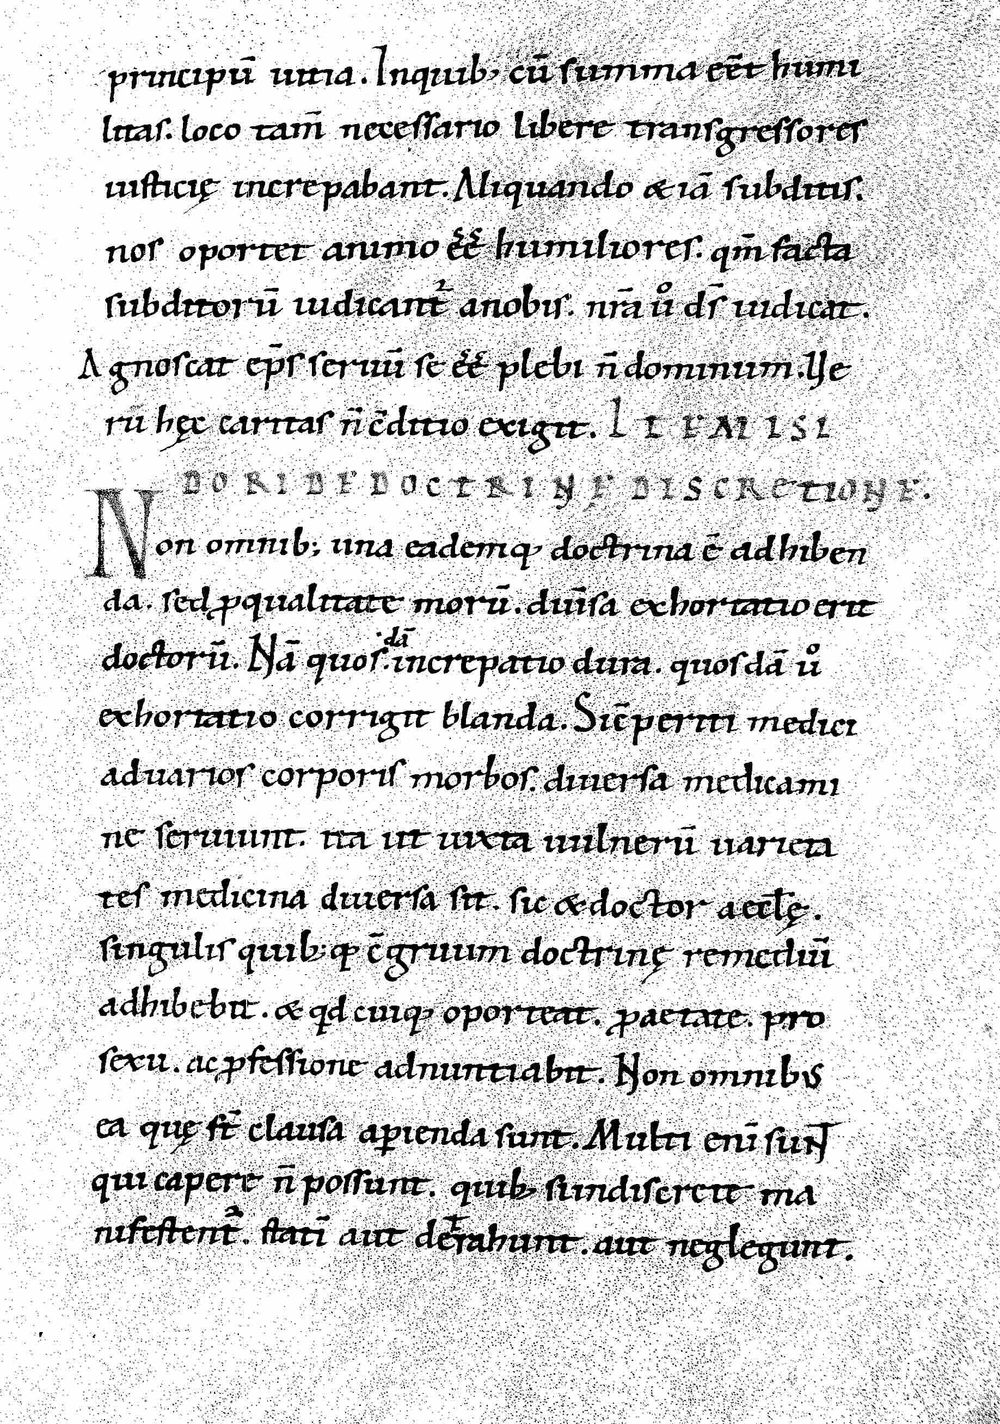 principū uitia. Inquib; cū summa eēt humi
litas. loco tam̄ necessario libere transgressores
iusticię increpabant. Aliquando & iā subditis.
nos oportet animo eē humiliores. qm̄ facta
subditorū iudicant᷑ anobis. nr̄a uͦ dſ̄ iudicat.
Agnoscat ep̄s seruū se eē plebi n̄ dominum. Ve
rū hęc caritas n̄ c̄ditio exigit. ITEM ISI
DORI DE DOCTRINE DISCRETIONE.
Non omnib; una eademq; doctrina ē adhiben
da. sed ꝓqualitate morū. diuīsa exhortatio erit
doctorū. Nā quos.dā increpatio dura. quosdā uͦ
exhortatio corrigit blanda. Sic̄ periti medici
aduarios corporis morbos. diuersa medicami
ne seruiunt. ita ut iuxta uulnerū uarieta
tes medicina diuersa sit. sic & doctor aeccl̄ę.
singulis quib;q; c̄gruum doctrinę remediū
adhibebit. & qd cuiq; oporteat. ꝓaetate. pro
sexu. ac ꝓfessione adnuntiabit. Non omnibus
ea quę st̄ clausa aꝑienda sunt. Multi eni̅ sunt
qui capere n̄ possunt. quib; siindiscrete ma
nifestent᷑. statī aut detrahunt. aut neglegunt.